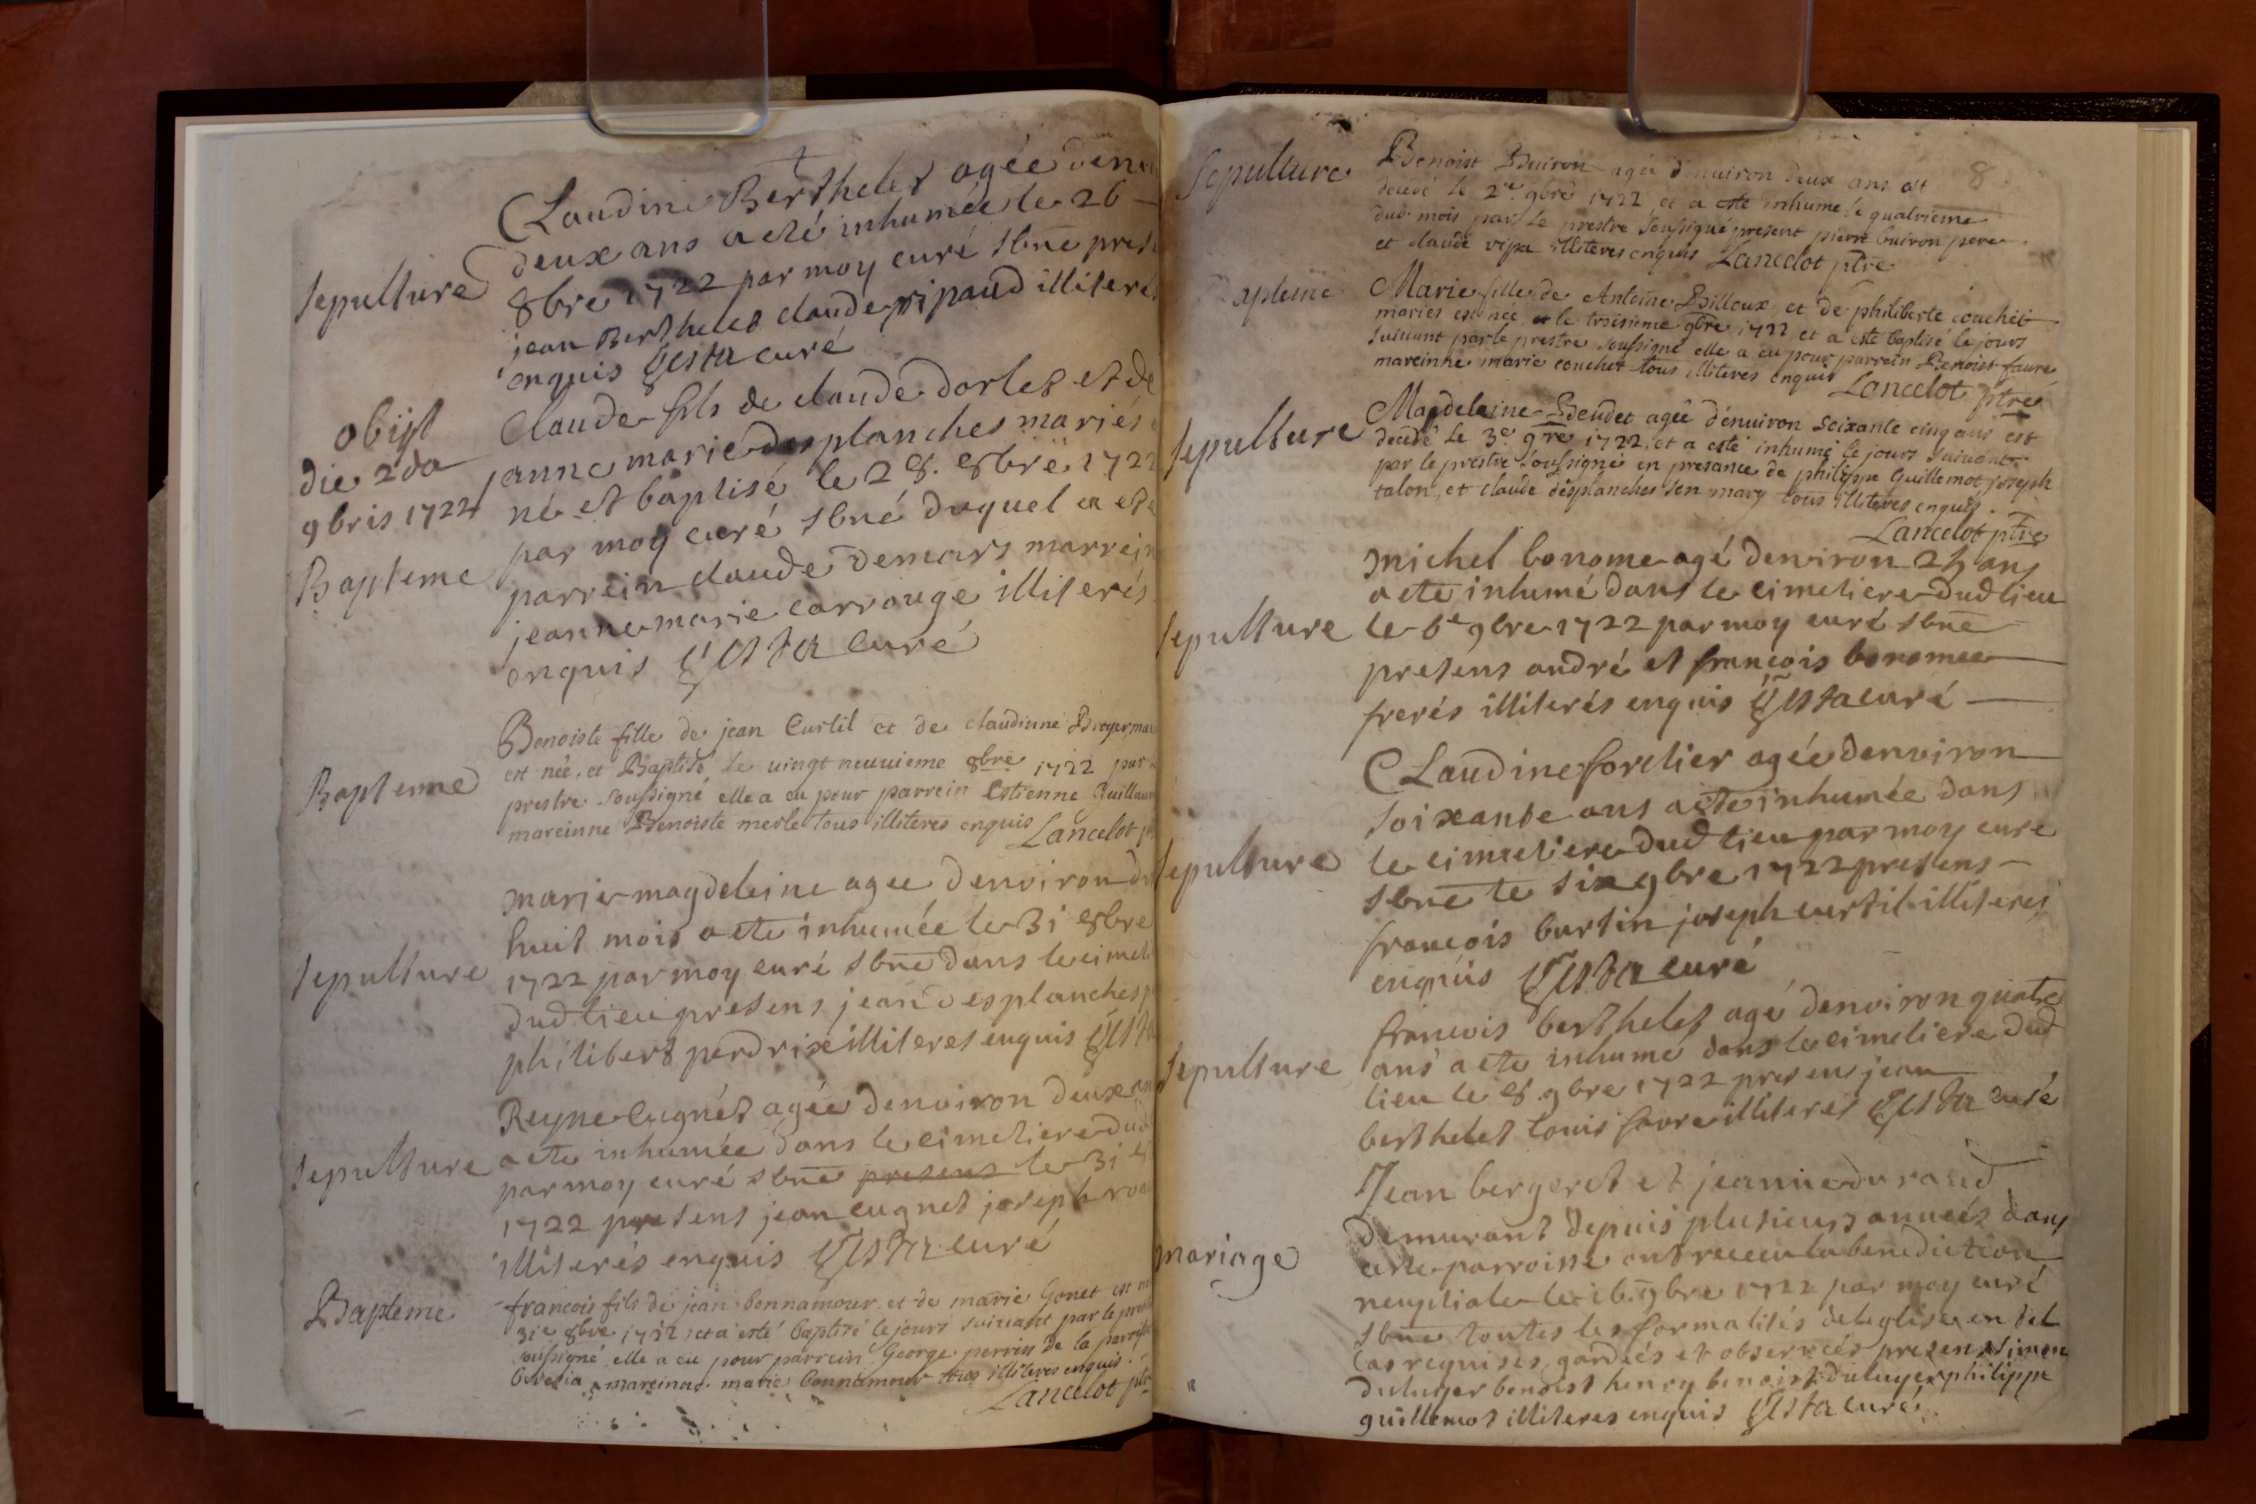 Sepulture
Claudine Berthelet agée denv
deux ans a eté inhumée le 26
8bre 1722 par moy curé sbné pres
jean Berthelet claude ripaud illiterés
enquis Gesta curé
obijt
die 2da
9bris 1722
Bapteme
Claude fils de claude dorlet et de
janne marie desplanches mariés
né et baptisé le 28. 8bre 1722
par moy curé sbné duquel a eté
parrein claude demars marrein
jeanne marie carrouge illiterés
enquis Gesta curé
Bapteme
Benoiste fille de jean Curtil et de claudinne Broyer mar
est née, et Baptisé le vingt neuvieme 8bre 1722 par
prestre soussigné elle a eu pour parrein Estienne Guillau
mareinne Benoiste merle tous illiteres enquis Lancelot p
Sepulture
marie magdeleine agee denviron di
huit mois a eté inhumée le 31 8bre
1722 par moy curé sbné dans le cimeti
dud lieu presens jean desplanches
philibert perdrix illiteres enquis Gesta
Sepulture
Reyne Cugnet agée denviron deux an
a eté inhumée dans le cimetiere dud
par moy curé sbné presens le 31
1722 presens jean cugnet joseph
illiterés enquis Gesta curé
Bapteme
francois fils de jean bonnamour et de marie Gonet est n
31e 8bre 1722, et a esté baptisé le jours suivant par le pres
soussigné elle a eu pour parrein George perrin de la parroi
mareinne marie bonnamour tous illiteres enquis.
Lancelot ptre
8
Sepulture
Benoist Buiron agée d'enuiron deux ans est
decedé le 2e 9bre 1722 et a esté inhumé le quatrieme
dud mois par le prestre soussigné present pierre buiron pere
et claude illiteres enquis Lancelot ptre
apteme
Marie fille de Antoine Billoux et de philiberte couchet
maries est née le troisieme 9bre 1722 et a esté baptisé le jours
suivant par le prestre soussigné elle a eu pour parrein Benoist faure
mareinne marie couchet tous illiteres enquis Lancelot ptre
Sepulture
Magdeleine agée d'enuiron soixante cinq ans est
decedé le 3e 9bre 1722, et a esté inhumé le jours suivant
par le prestre soussigné en presance de philippe Guillemot joseph
talon, et claude desplanches son mary tous illiteres enquis.
Lancelot ptre
Sepulture
michel bonome agé denviron 25 ans
a eté inhumé dans le cimetiere dud lieu
le 6e 9bre 1722 par moy curé sbné
presens andré et francois bonome
frerés illiterés enquis Gesta curé
Sepulture
Claudine forelier agée denviron
soixante ans a eté inhumée dans
le cimetiere dud lieu par moy curé
sbné le six 9bre 1722 presens
francois burtin joseph curtil illiteres
enquis Gesta curé
Sepulture
francois berthelet agé denviron quatre
ans a eté inhumé dans le cimetiere dud
lieu le 8. 9bre 1722 presens jean
berthelet louis favre illiteres Gesta curé
mariage
Jean bergeret et jeanne durand
demurant depuis plusieurs années dans
cette parroisse ont receu la benediction
neuptiale le 16. 9bre 1722 par moy curé
sbné toutes les formalités de leglise en tel
cas requises gardeés et observeés presens simon
duluyer benoist henry benoist duluyer philippe
guillemot illiteres enquis Gesta curé.